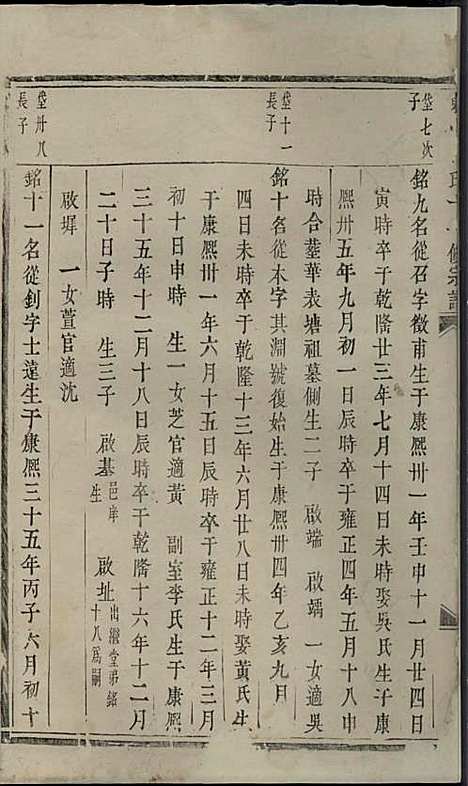 修宗譜
垒七次
子
銘九名從召字徵甫生于康熙卅一年壬申十一月廿四日
寅時卒于乾隆廿三年七月十四日未時娶吳氏生于康
熙卅五年九月初一日辰時卒于雍正四年五月十八申
時合塟華表塘祖墓側生二子 啟端 啟竬 一女適吳
垒十一
長子
銘十名從木字其淵號復始生于康熙卅四年乙亥九月
四日未時卒于乾隆十三年六月廿八日未時娶黃氏生
于康熙卅一年六月十五日辰時卒于雍正十二年三月
初十日申時 生一女芝官適黃 副室李氏生于康熙
三十五年十二月十八日辰時卒于乾隆十六年十二月
二十日子時 生三子 啟基邑庠生 啟址出繼堂弟銘十八爲嗣
啟墀 一女萱官適沈
垒卅八
長子
銘十一名從釗字士遠生于康熙三十五年丙子六月初十